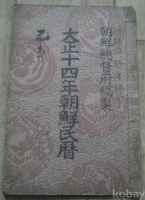 朝鮮總督府編製
大正十四年朝鮮民曆
乙丑
kobay